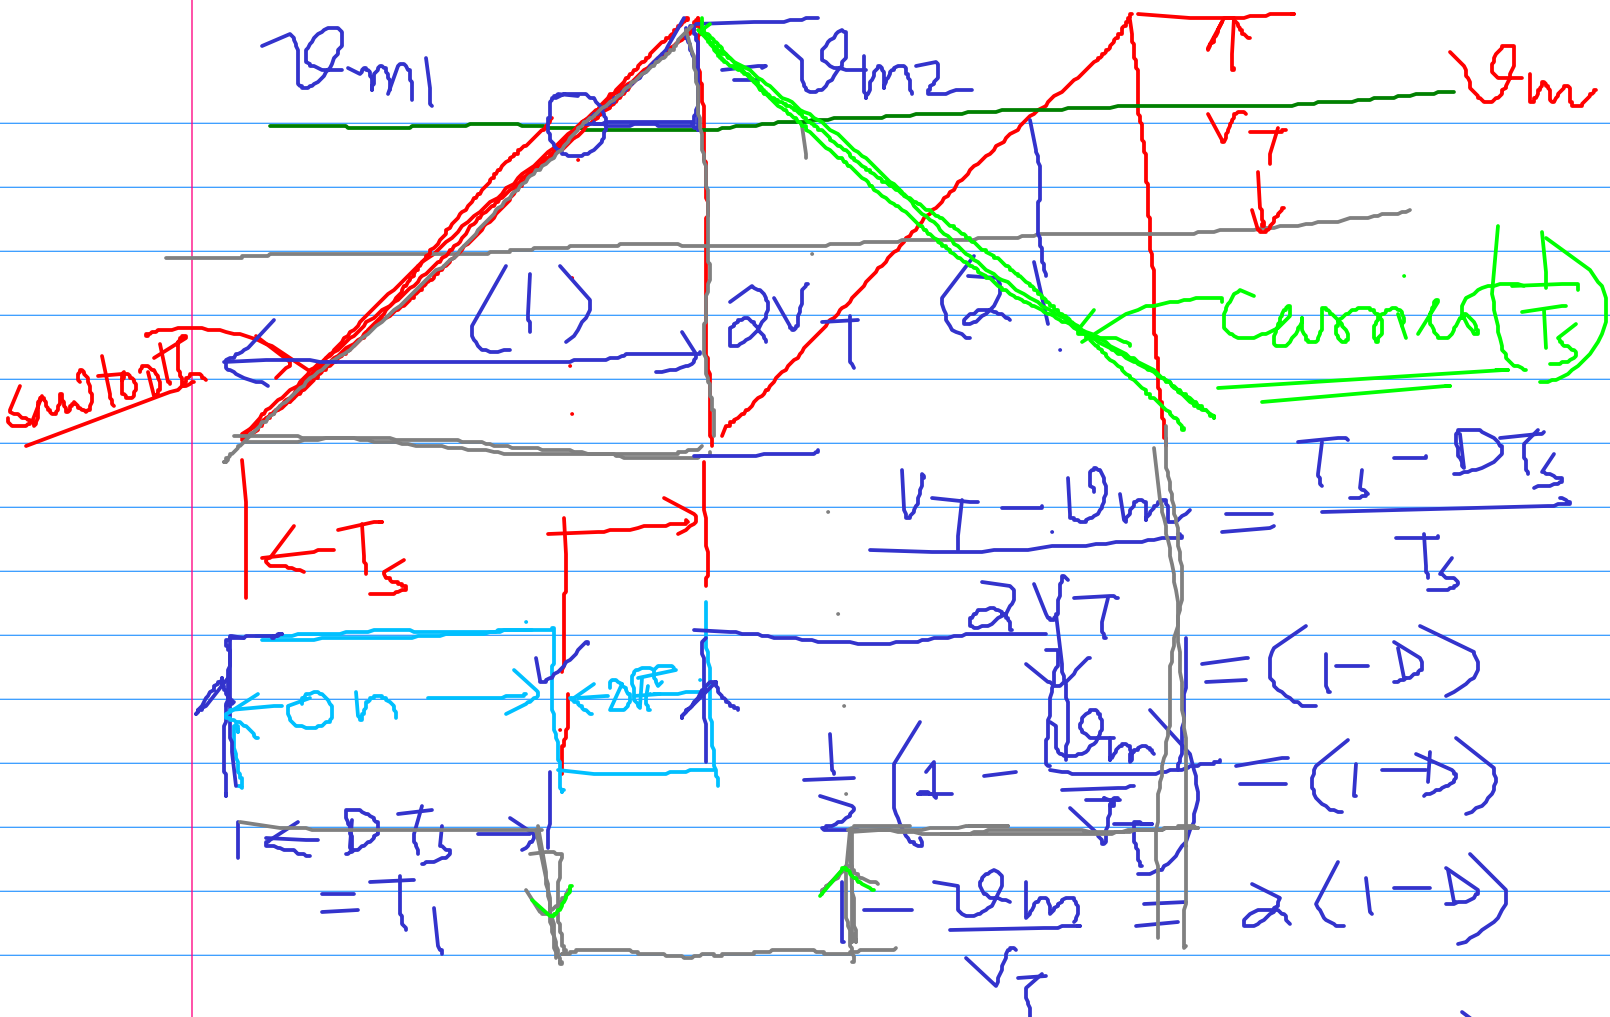 vm1
= vm2
vm
VT
(1)
2VT
(2)
Carrier (1/Ts)
sawtooth
← Ts →
(VT - vm)/2VT = (Ts - DTs)/Ts
← on → ← off
= (1 - D)
1/2 (1 - vm/VT) = (1 - D)
← DTs →
= T1
1 - vm/VT = 2(1 - D)